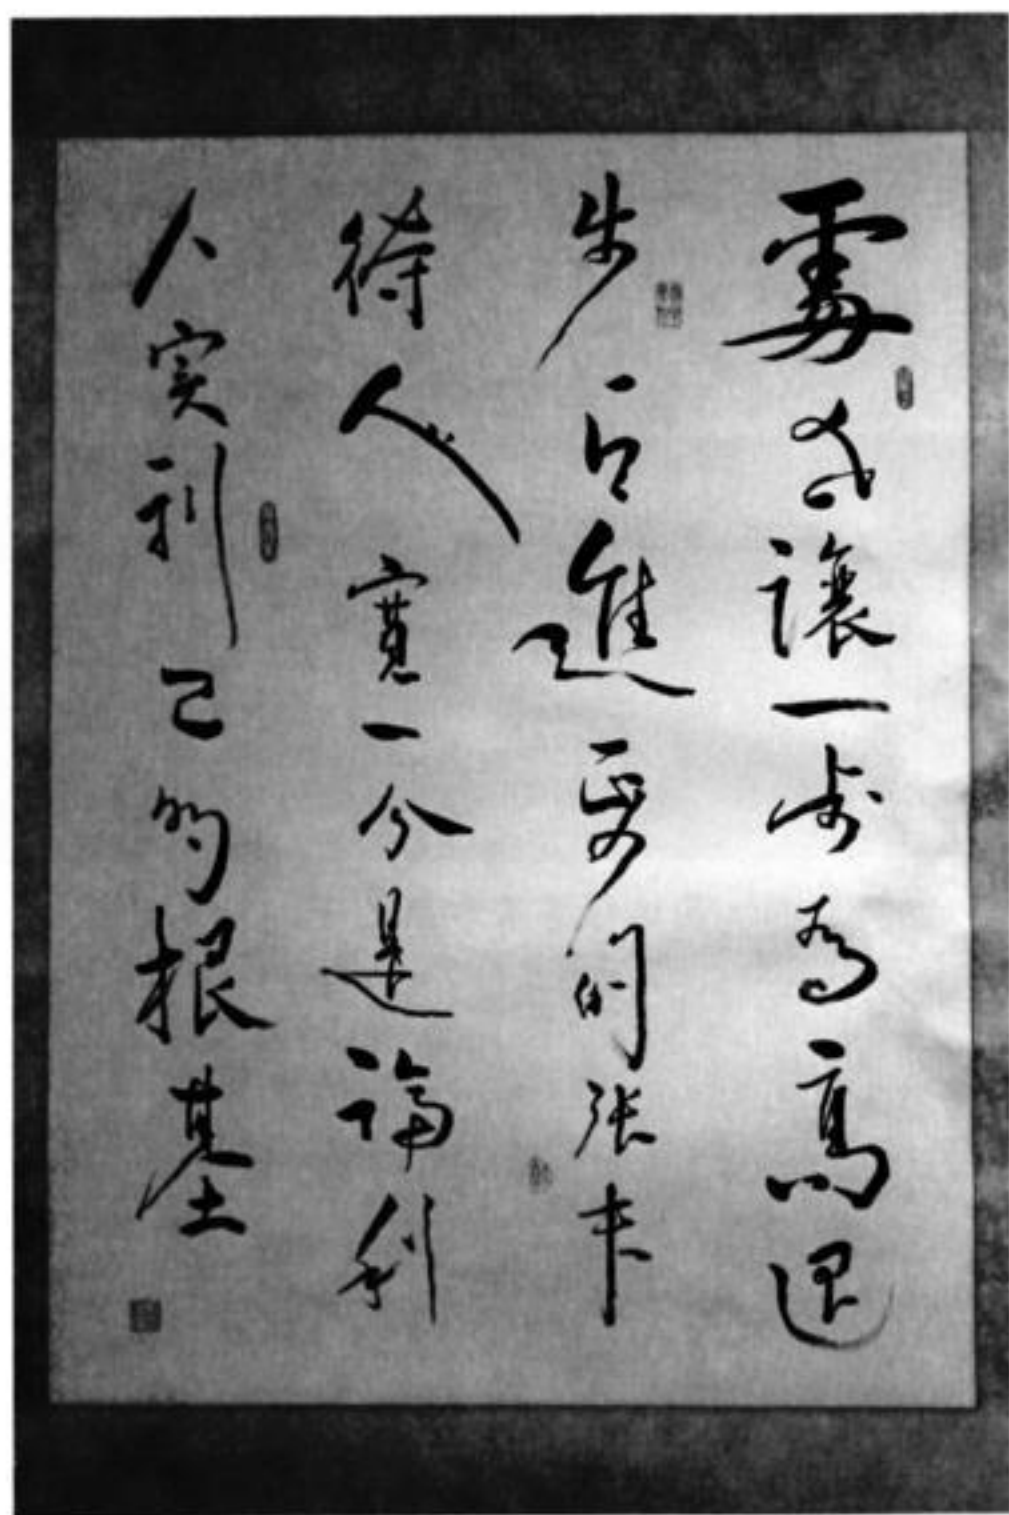 處世讓一步為高退
步即進步的張本
待人寬一分是福利
人实利己的根基